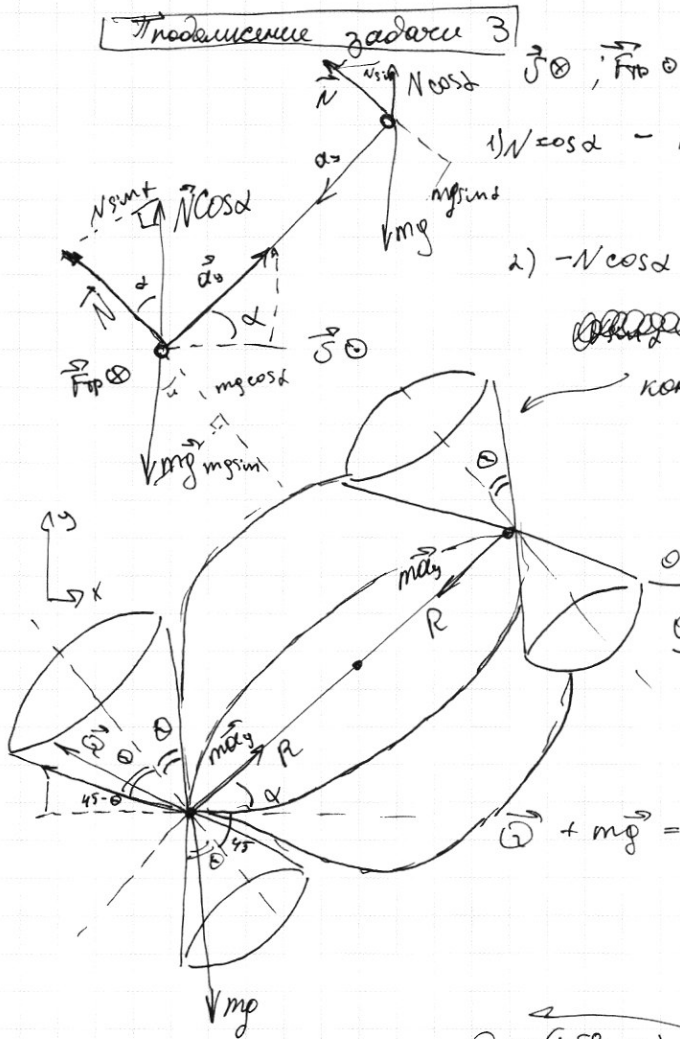 Продолжение задачи 3
N⃗ Nsinα Ncosα S⃗ ⊗ ; F⃗тр ⊙
1) N cosα -
a⃗y mgsinα
mg⃗
Nsinα N⃗cosα
2) -N cosα
α a⃗y
N⃗ α S⃗ ⊙
F⃗тр ⊗ mgcosα
α
mg⃗ mgsinα
θ
y
x
ma⃗y
R
θ
Q⃗ θ ma⃗y R
45-θ α
θ 45
Q⃗ + mg⃗ =
mg